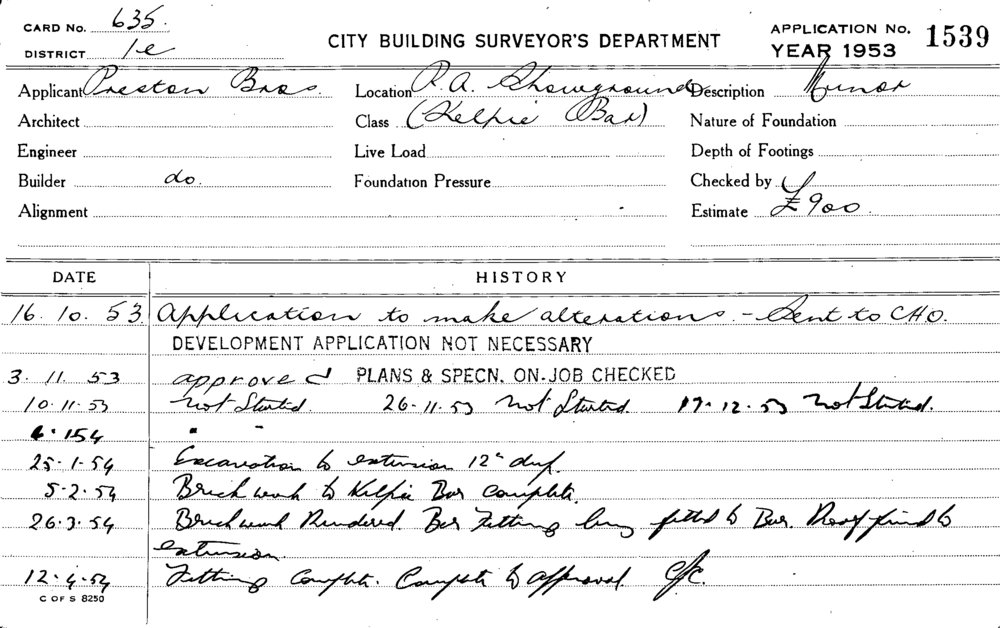 CARD No. 635.
DISTRICT 1e
CITY BUILDING SURVEYOR'S DEPARTMENT
APPLICATION No. 1539
YEAR 1953
Applicant Preston Bros. Location R.A. Showground Description Minor
Architect Class (Kelpie Bar) Nature of Foundation
Engineer Live Load Depth of Footings
Builder do. Foundation Pressure Checked by
Alignment Estimate £900.
DATE HISTORY
16.10.53 Application to make alterations. - Sent to CHO.
DEVELOPMENT APPLICATION NOT NECESSARY
3.11.53 approved PLANS & SPECN. ON-JOB CHECKED
10.11.53 Not Started. 26.11.53 Not Started. 17.12.53 Not Started.
6.1.54 " "
25.1.54 Excavation to extension 12" deep.
5.2.54 Brickwork to Kelpie Bar complete.
26.3.54 Brickwork Rendered. Bar Fitting being fitted to Bar. Roof fixed to
extension.
12.4.54 Fitting Complete. Complete to approval. C/C.
C OF S 8250